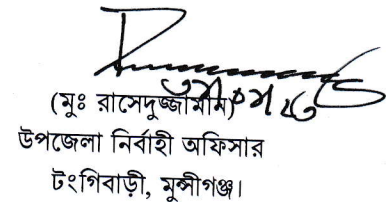 (মুঃ রাসেদুজ্জামান)
উপজেলা নির্বাহী অফিসার
টংগিবাড়ী, মুন্সীগঞ্জ।